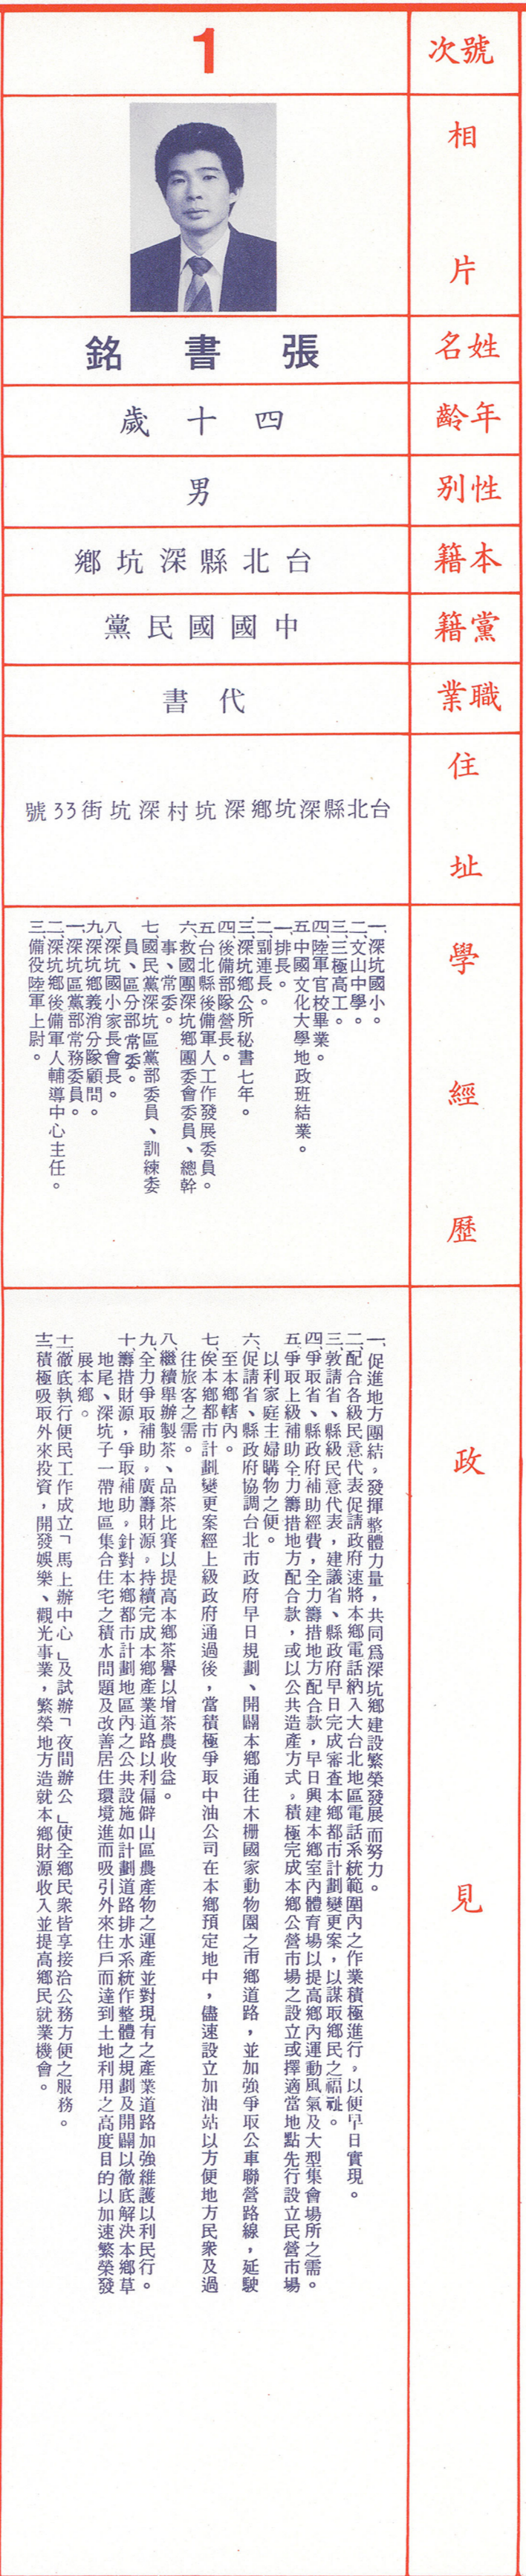 號次
1
相片
姓名
張書銘
年齡
四十歲
性別
男
本籍
台北縣深坑鄉
黨籍
中國國民黨
職業
代書
住址
台北縣深坑鄉深坑村深坑街33號
學經歷
一、深坑國小。
二、文山中學。
三、三極高工。
四、陸軍官校畢業。
五、中國文化大學地政班結業。
一、排長。
二、副連長。
三、深坑鄉公所秘書七年。
四、後備部隊營長。
五、台北縣後備軍人工作發展委員。
六、救國團深坑鄉團委會委員、總幹
事、常委。
七、國民黨深坑區黨部委員、訓練委
員、區分部常委。
八、深坑國小家長會長。
九、深坑鄉義消分隊顧問。
一、深坑區黨部常務委員。
二、深坑鄉後備軍人輔導中心主任。
三、備役陸軍上尉。
政見
一、促進地方團結，發揮整體力量，共同為深坑鄉建設繁榮發展而努力。
二、配合各級民意代表促請政府速將本鄉電話納入大台北地區電話系統範圍內之作業積極進行，以便早日實現。
三、敦請省、縣級民意代表，建議省、縣政府早日完成審查本鄉都市計劃變更案，以謀取鄉民之福祉。
四、爭取省、縣政府補助經費，全力籌措地方配合款，早日興建本鄉室內體育場以提高鄉內運動風氣及大型集會場所之需。
五、爭取上級補助全力籌措地方配合款，或以公共造產方式，積極完成本鄉公營市場之設立或擇適當地點先行設立民營市場
以利家庭主婦購物之便。
六、促請省、縣政府協調台北市政府早日規劃、開闢本鄉通往木柵國家動物園之市鄉道路，並加強爭取公車聯營路線，延駛
至本鄉轄內。
七、俟本鄉都市計劃變更案經上級政府通過後，當積極爭取中油公司在本鄉預定地中，儘速設立加油站以方便地方民衆及過
往旅客之需。
八、繼續舉辦製茶、品茶比賽以提高本鄉茶譽以增茶農收益。
九、全力爭取補助，廣籌財源，持續完成本鄉產業道路以利偏僻山區農產物之運產並對現有之產業道路加強維護以利民行。
十、籌措財源，爭取補助，針對本鄉都市計劃地區內之公共設施如計劃道路排水系統作整體之規劃及開闢以徹底解決本鄉草
地尾、深坑子一帶地區集合住宅之積水問題及改善居住環境進而吸引外來住戶而達到土地利用之高度目的以加速繁榮發
展本鄉。
十一、徹底執行便民工作成立「馬上辦中心」及試辦「夜間辦公」使全鄉民衆皆享接洽公務方便之服務。
十二、積極吸取外來投資，開發娛樂、觀光事業，繁榮地方造就本鄉財源收入並提高鄉民就業機會。